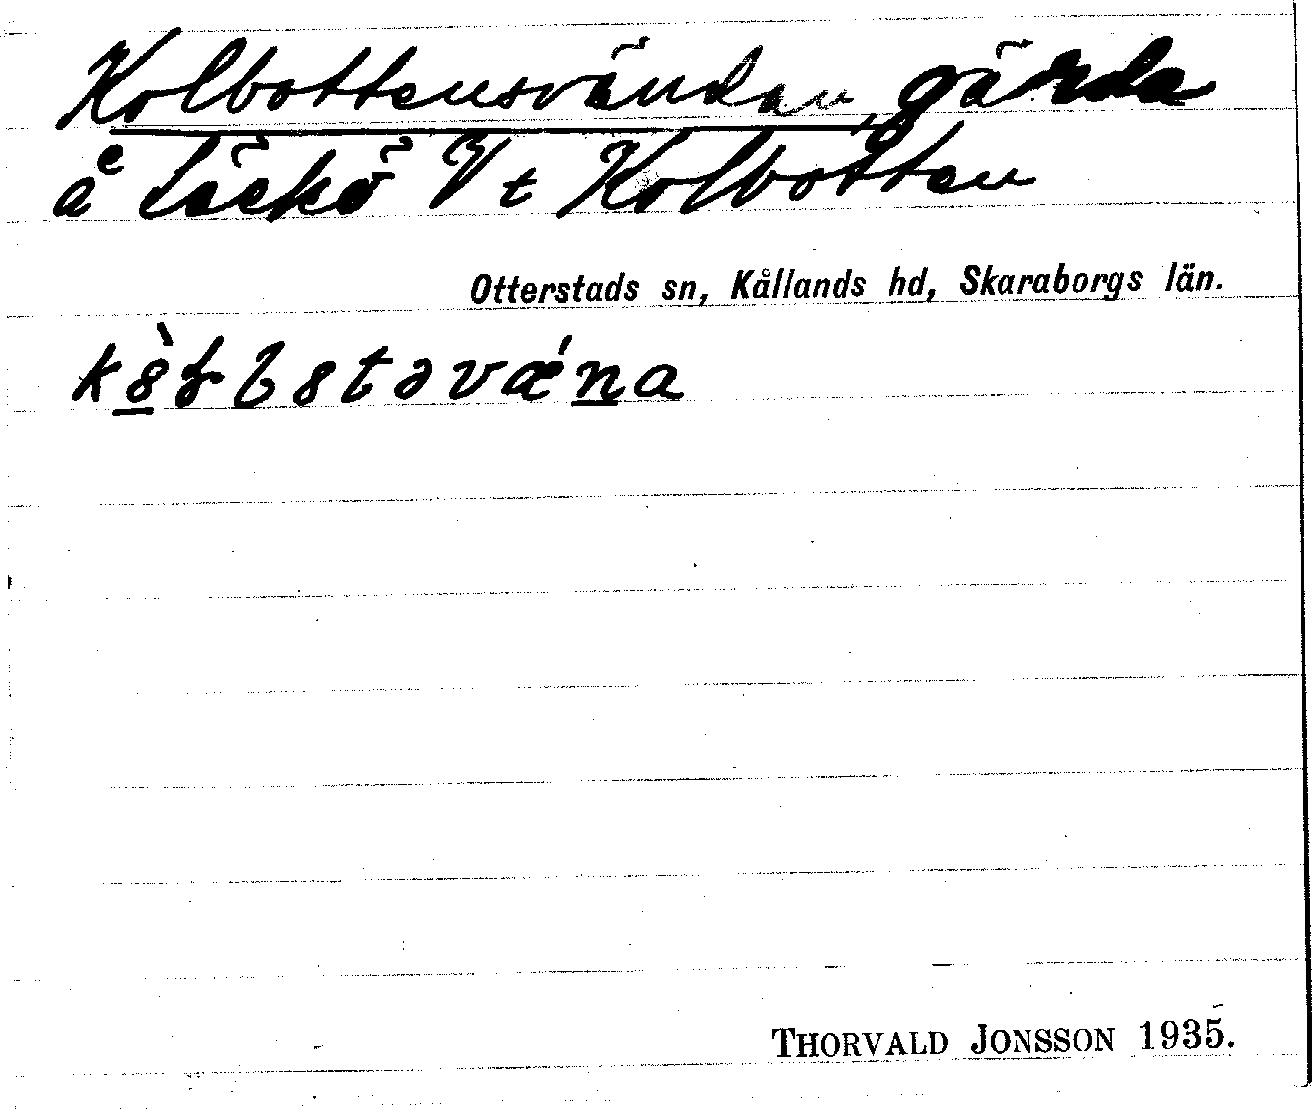 Kolbottensvändan, gärde
å Läckö V t Kolbotten
Otterstads sn, Kållands hd, Skaraborgs län.
THORVALD JONSSON 1935.